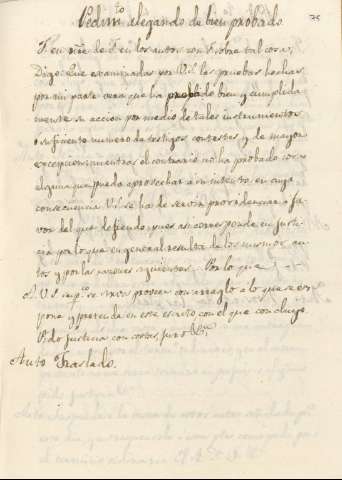 75
Pedim.to alegando de bien probado.
F. en nre de F. en los autos con F. sobre tal cosa,
Digo: Que examinadas por V.S. las pruebas hechas
por mi parte vera que ha probado bien y cumplida
mente su accion por medio de tales instrumentos
o suficiente numero de testigos contestes y de mayor
excepcion mientras el contrario no ha probado cosa
alguna que pueda aprovechar a su intento, en cuya
consecuencia V.S. se ha de servir providenciar a fa-
vor del que defiendo, pues asi corresponde en justi-
cia por lo que en general resulta de los mismos au-
tos y por las razones siguientes. Por lo que
A V.S. sup.co se sirva proveer con arreglo a lo que se ex-
pone y pretende en este escrito con el que concluyo.
Pido justicia con costas, juro &.a
Auto Traslado.